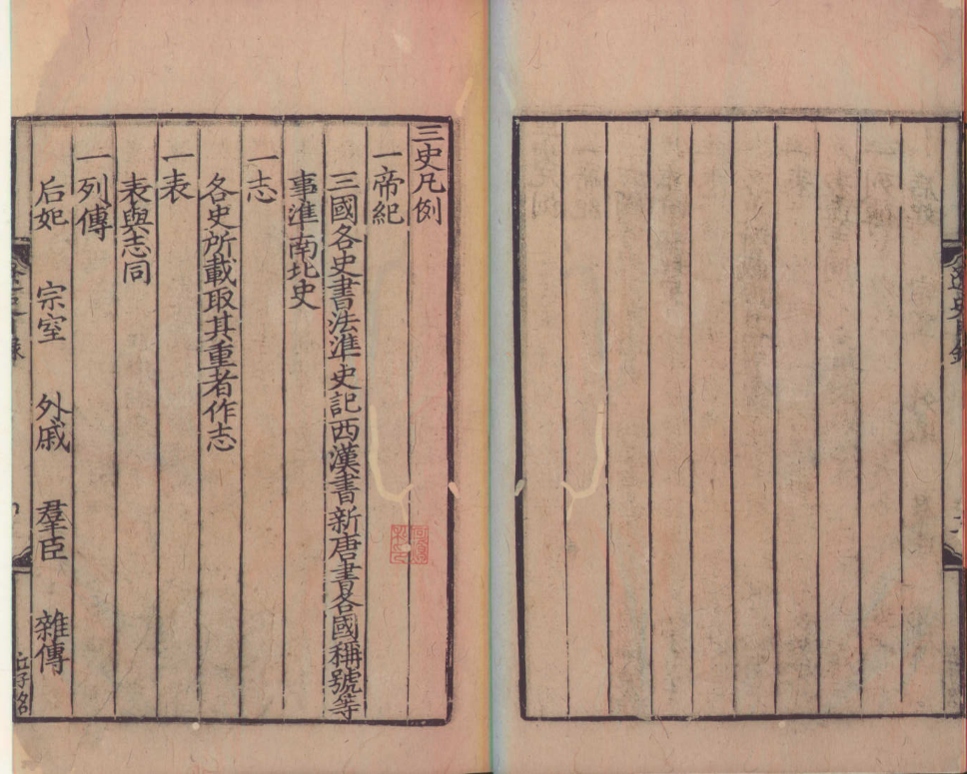 三史凡例
一帝紀
三國各史書法準史記西漢書新唐書各國稱號等
事準南北史
一志
各史所載取其重者作志
一表
表與志同
一列傳
后妃 宗室 外戚 羣臣 雜傳